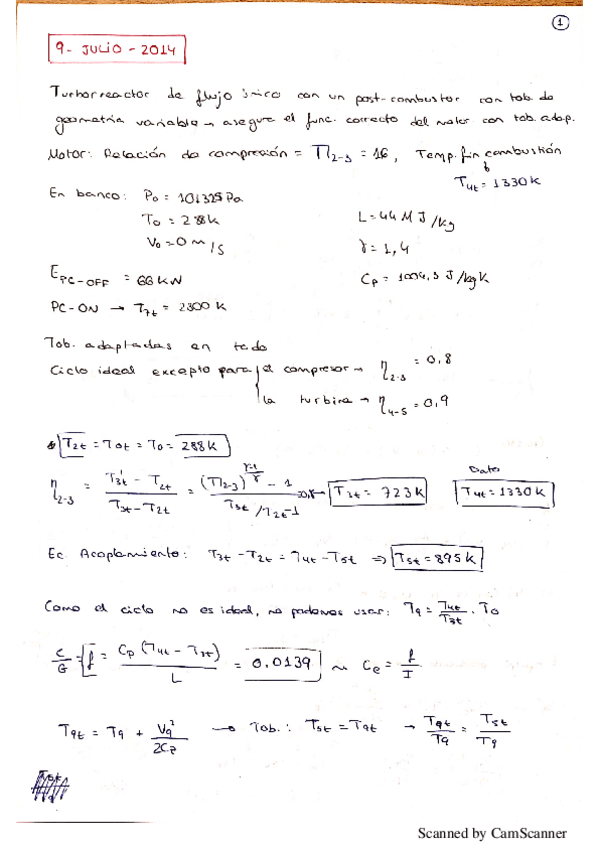 1
9 - JULIO - 2014
Turborreactor de flujo único con un post-combustor con tob. de
geometria variable → asegura el func. correcto del motor con tob. adap.
Motor: Relación de compresión = Π2-3 = 16, Temp. fin combustión
T4t = 1330 K
En banco: P0 = 101325 Pa
T0 = 288 K
V0 = 0 m/s
L = 44 MJ/kg
γ = 1,4
EPC-OFF = 66 kN
Cp = 1004,5 J/kgK
PC-ON → T7t = 2300 K
Tob. adaptadas en todo
Ciclo ideal excepto para el compresor → η2-3 = 0,8
la turbina → η4-5 = 0,9
T2t = T0t = T0 = 288 K
η2-3 = T3t' - T2t / T3t - T2t = (Π2-3)^(γ-1/γ) - 1 / T3t/T2t - 1 → T3t = 723 K
Dato
T4t = 1330 K
Ec. Acoplamiento: T3t - T2t = T4t - T5t ⇒ T5t = 895 K
Como el ciclo no es ideal, no podemos usar: T9 = T4t/T3t · T0
C/G = f = Cp (T4t - T3t) / L = 0,0139 ~ Ce = f/I
T9t = T9 + V9²/2Cp → Tob.: T5t = T9t → T9t/T9 = T5t/T9
Scanned by CamScanner